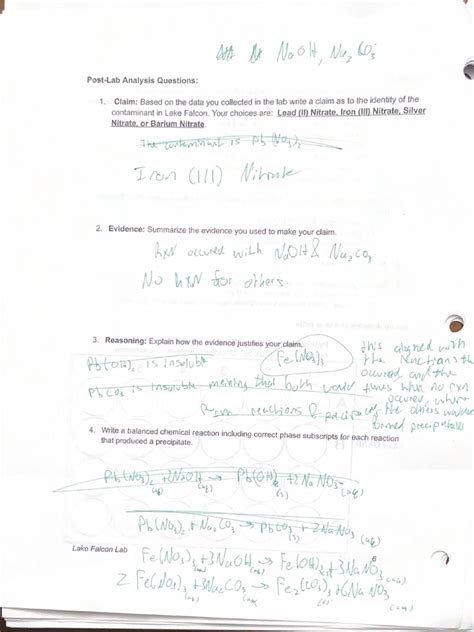 NaOH, Na2CO3
Post-Lab Analysis Questions:
1. Claim: Based on the data you collected in the lab write a claim as to the identity of the
contaminant in Lake Falcon. Your choices are: Lead (II) Nitrate, Iron (III) Nitrate, Silver
Nitrate, or Barium Nitrate.
The contaminant is Pb(NO3)2
Iron (III) Nitrate
2. Evidence: Summarize the evidence you used to make your claim.
RXN occured with NaOH & Na2CO3
No RXN for others.
3. Reasoning: Explain how the evidence justifies your claim.
Pb(OH)2 is insoluble
Fe(NO3)3
PbCO3 is insoluble meaning that both would
form reactions &
this aligned with
the reactions that
occured and the
times when no rxn
occured, where
the others would've
formed precipitates
4. Write a balanced chemical reaction including correct phase subscripts for each reaction
that produced a precipitate.
Pb(NO3)2 + 2NaOH → Pb(OH)2 + 2NaNO3
(aq) (aq) (s) (aq)
Pb(NO3)2 + Na2CO3 → PbCO3 + 2NaNO3
(s) (aq)
Lake Falcon Lab
Fe(NO3)3 + 3NaOH → Fe(OH)3 + 3NaNO3
2Fe(NO3)3 + 3Na2CO3 → Fe2(CO3)3 + 6NaNO3